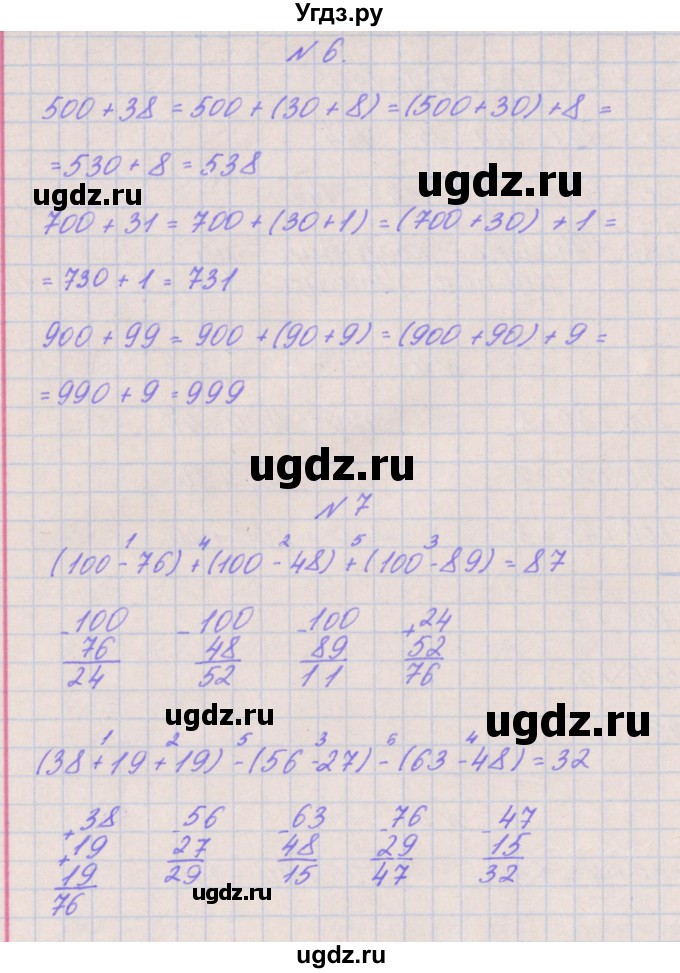 Угдз.ру
N 6.
500 + 38 = 500 + (30 + 8) = (500 + 30) + 8 =
= 530 + 8 = 538
ugdz.ru
ugdz.ru
700 + 31 = 700 + (30 + 1) = (700 + 30) + 1 =
= 730 + 1 = 731
900 + 99 = 900 + (90 + 9) = (900 + 90) + 9 =
= 990 + 9 = 999
ugdz.ru
N 7
1 4 2 5 3
(100 - 76) + (100 - 48) + (100 - 89) = 87
- 100 - 100 - 100 + 24
76 48 89 52
24 52 11 76
ugdz.ru
ugdz.ru
1 2 5 3 6 4
(38 + 19 + 19) - (56 - 27) - (63 - 48) = 32
+ 38 - 56 - 63 - 76 - 47
+ 19 27 48 29 15
19 29 15 47 32
76
ugdz.ru
ugdz.ru